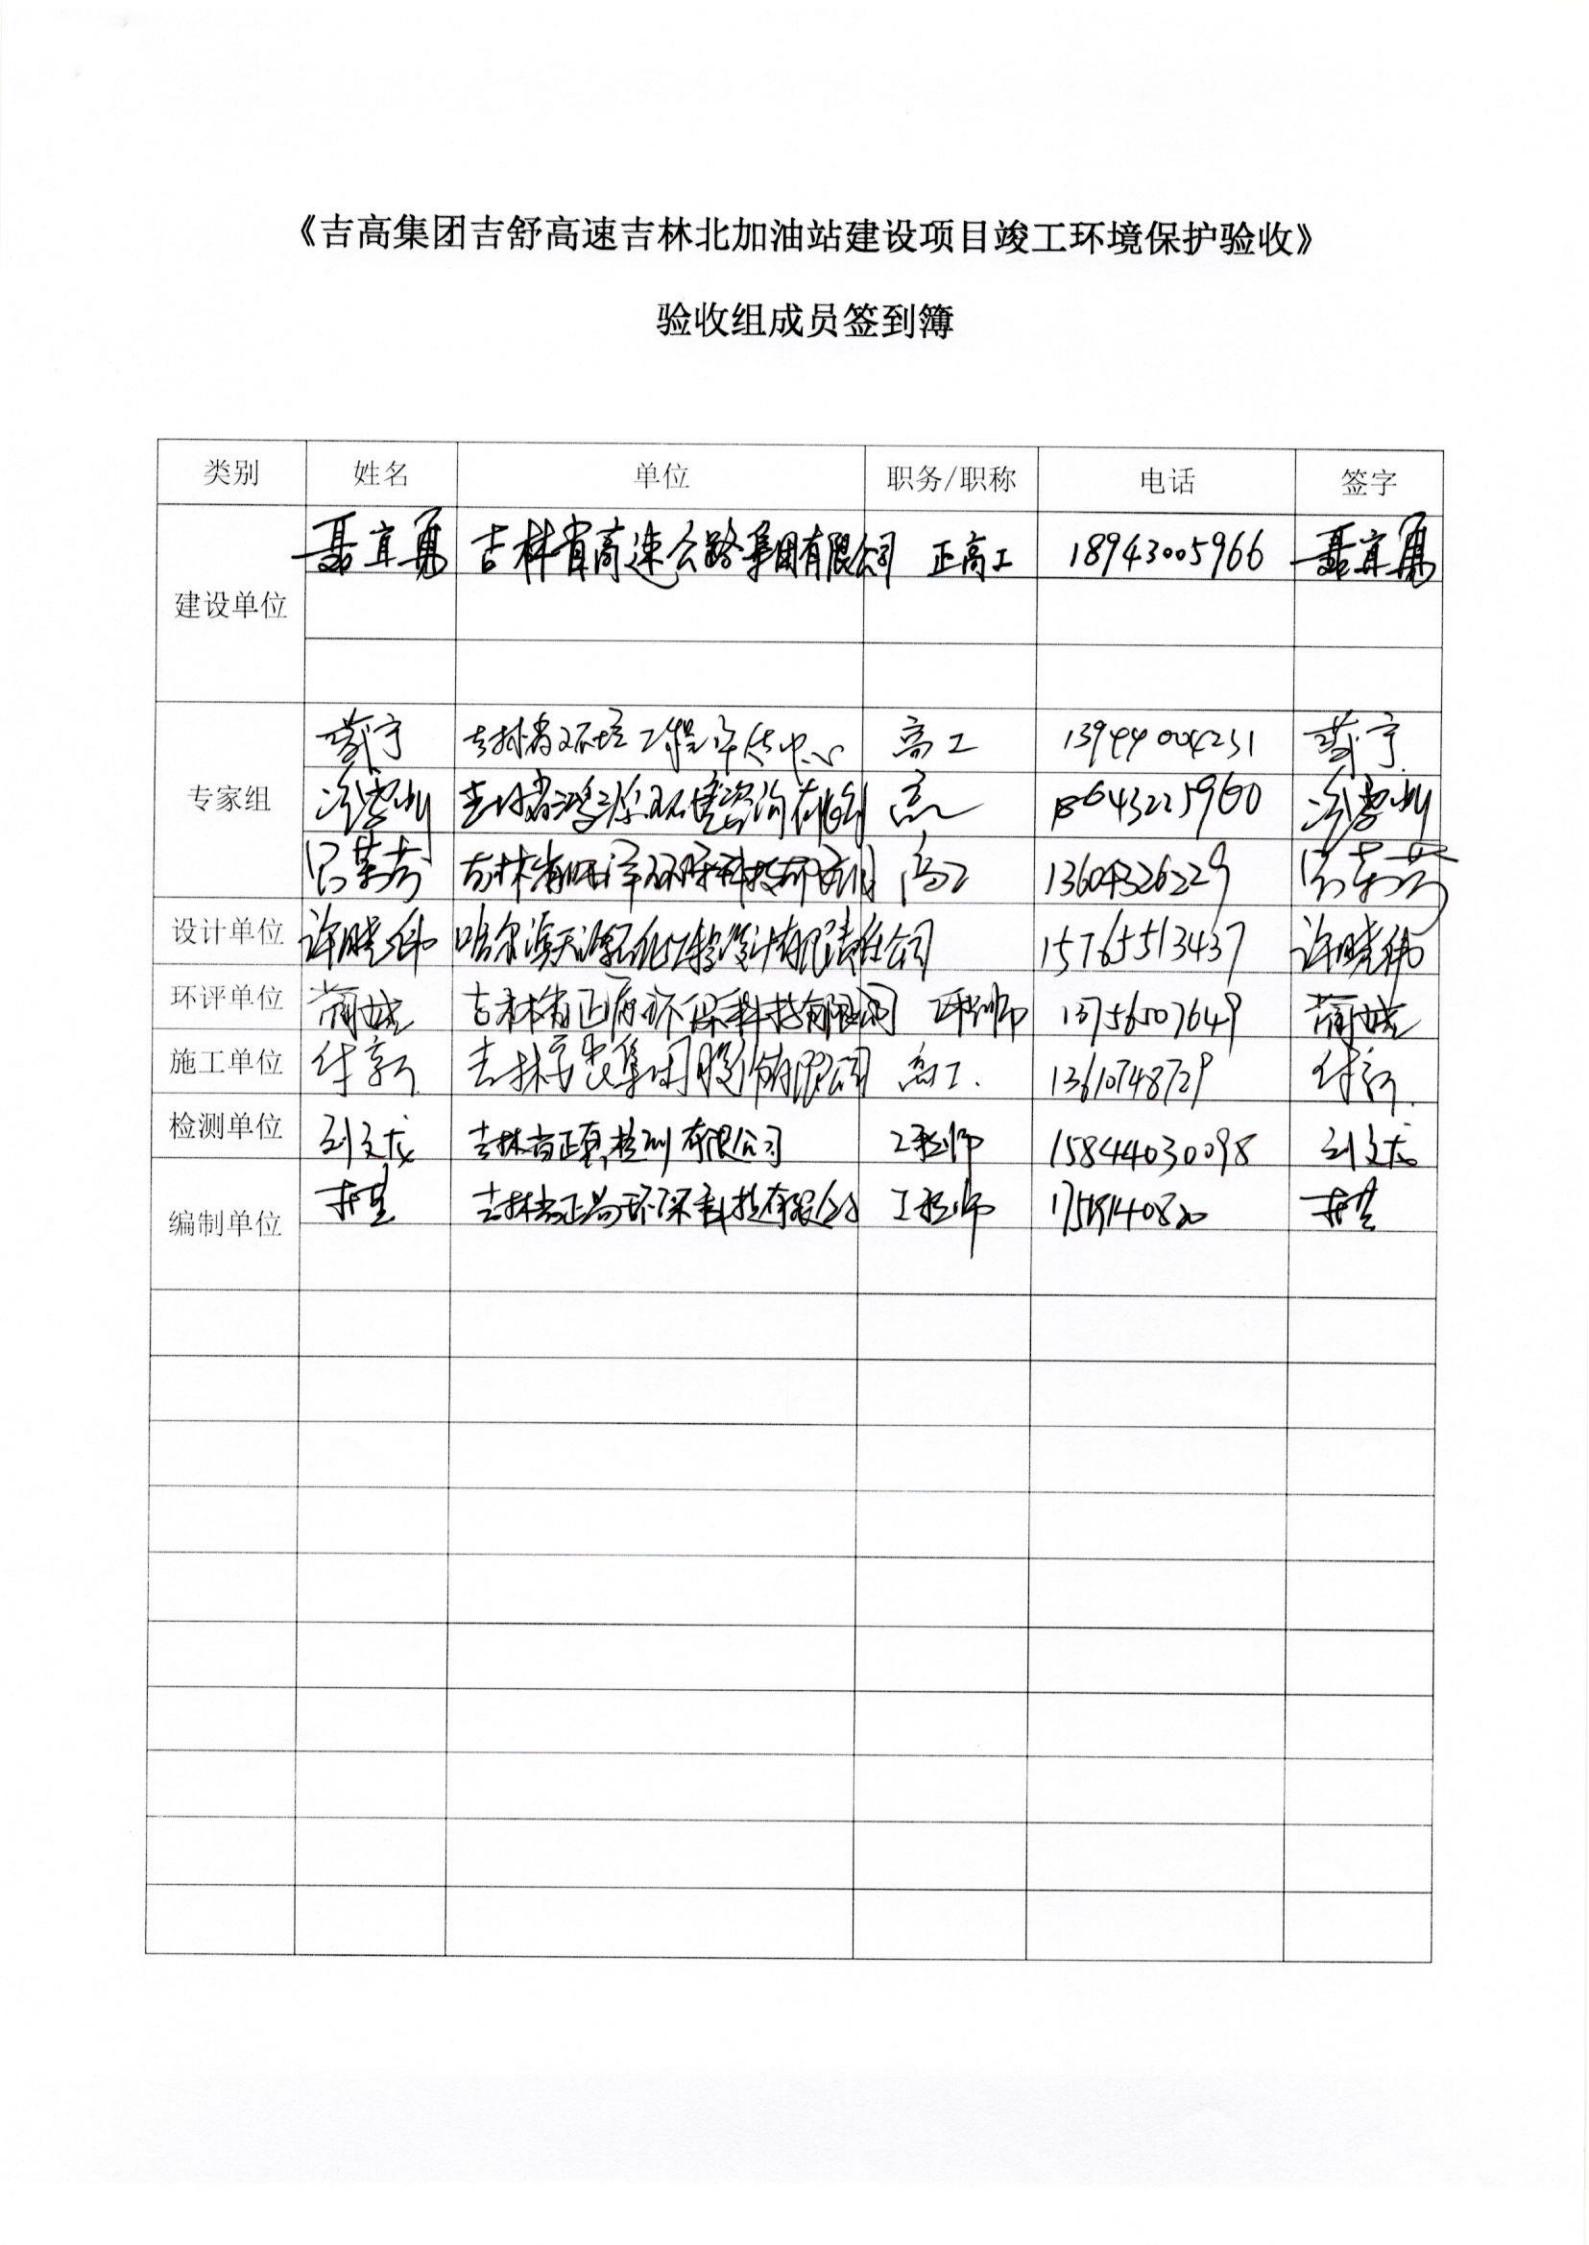 《吉高集团吉舒高速吉林北加油站建设项目竣工环境保护验收》
验收组成员签到簿
类别 姓名 单位 职务/职称 电话 签字
建设单位 聂宜勇 吉林省高速公路集团有限公司 正高工 18943005966 聂宜勇
专家组
吉林省环境工程评估中心 高工 13944004231
吉林省鸿源环境咨询有限公司 18643225960
吉林省 高工 13604326229
设计单位 许晓伟 哈尔滨天源石化工程设计有限责任公司 15765513437 许晓伟
环评单位 吉林省正源环保科技有限公司 工程师 13756507649
施工单位 付新 吉林 集团股份有限公司 高工. 13610748729 付新
检测单位 刘文龙 吉林省正真检测有限公司 工程师 15844030098 刘文龙
编制单位 吉林省 环保科技有限公司 工程师